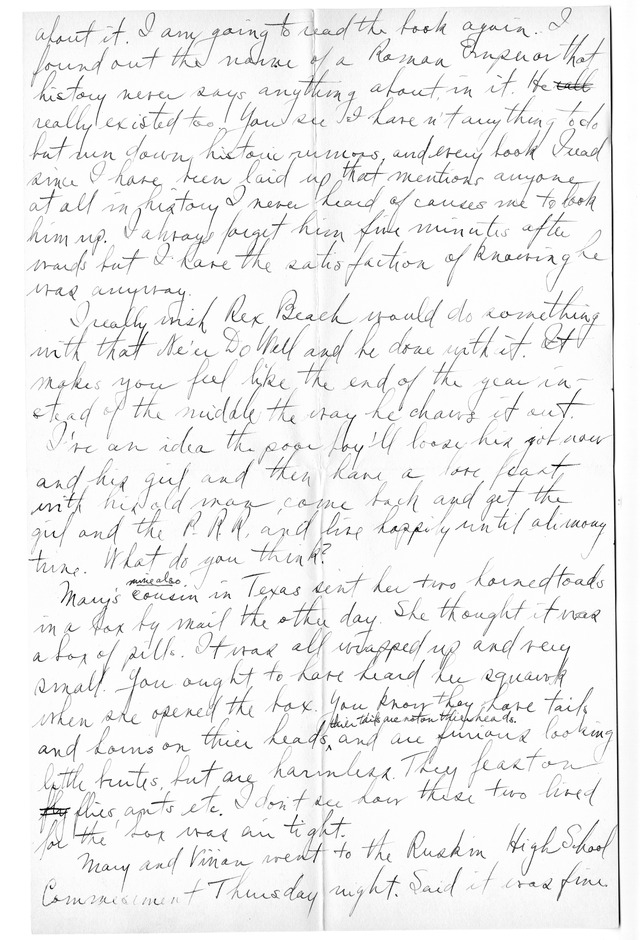 about it. I am going to read the book again. I
found out the name of a Roman Emperor that
history never says anything about, in it. He tall
really existed too. You see I haven't anything to do
but run down historic rumors, and every book I read
since I have been laid up that mentions anyone
at all in history I never heard of causes me to look
him up. I always forget him five minutes after
wards but I have the satisfaction of knowing he
was anyway.
I really wish Rex Beach would do something
with that Ne'er Do Well and be done with it. It
makes you feel like the end of the year in-
stead of the middle the way he chaws it out.
I've an idea the poor boy'll loose his job now
and his girl and then have a love feast
with his old man come back and get the
girl and the P.R.R. and live happily until alimony
time. What do you think?
Mary's mine also cousin in Texas sent her two horned toads
in a box by mail the other day. She thought it was
a box of pills. It was all wrapped up and very
small. You ought to have heard her squawk
when she opened the box. You know they have tails
and horns on thier heads, thier tails are not on thier heads. and are furious looking
little brutes, but are harmless. They feast on
fly flies, ants etc. I don't see how these two lived
for the box was air tight.
Mary and Vivian went to the Ruskin High School
Commencement Thursday night. Said it was fine.